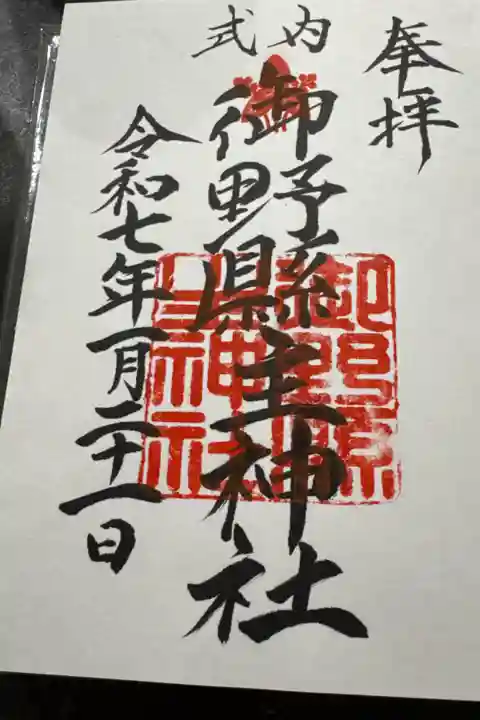 奉拝
式内
御野縣主神社
令和七年一月二十一日
御野縣主神社